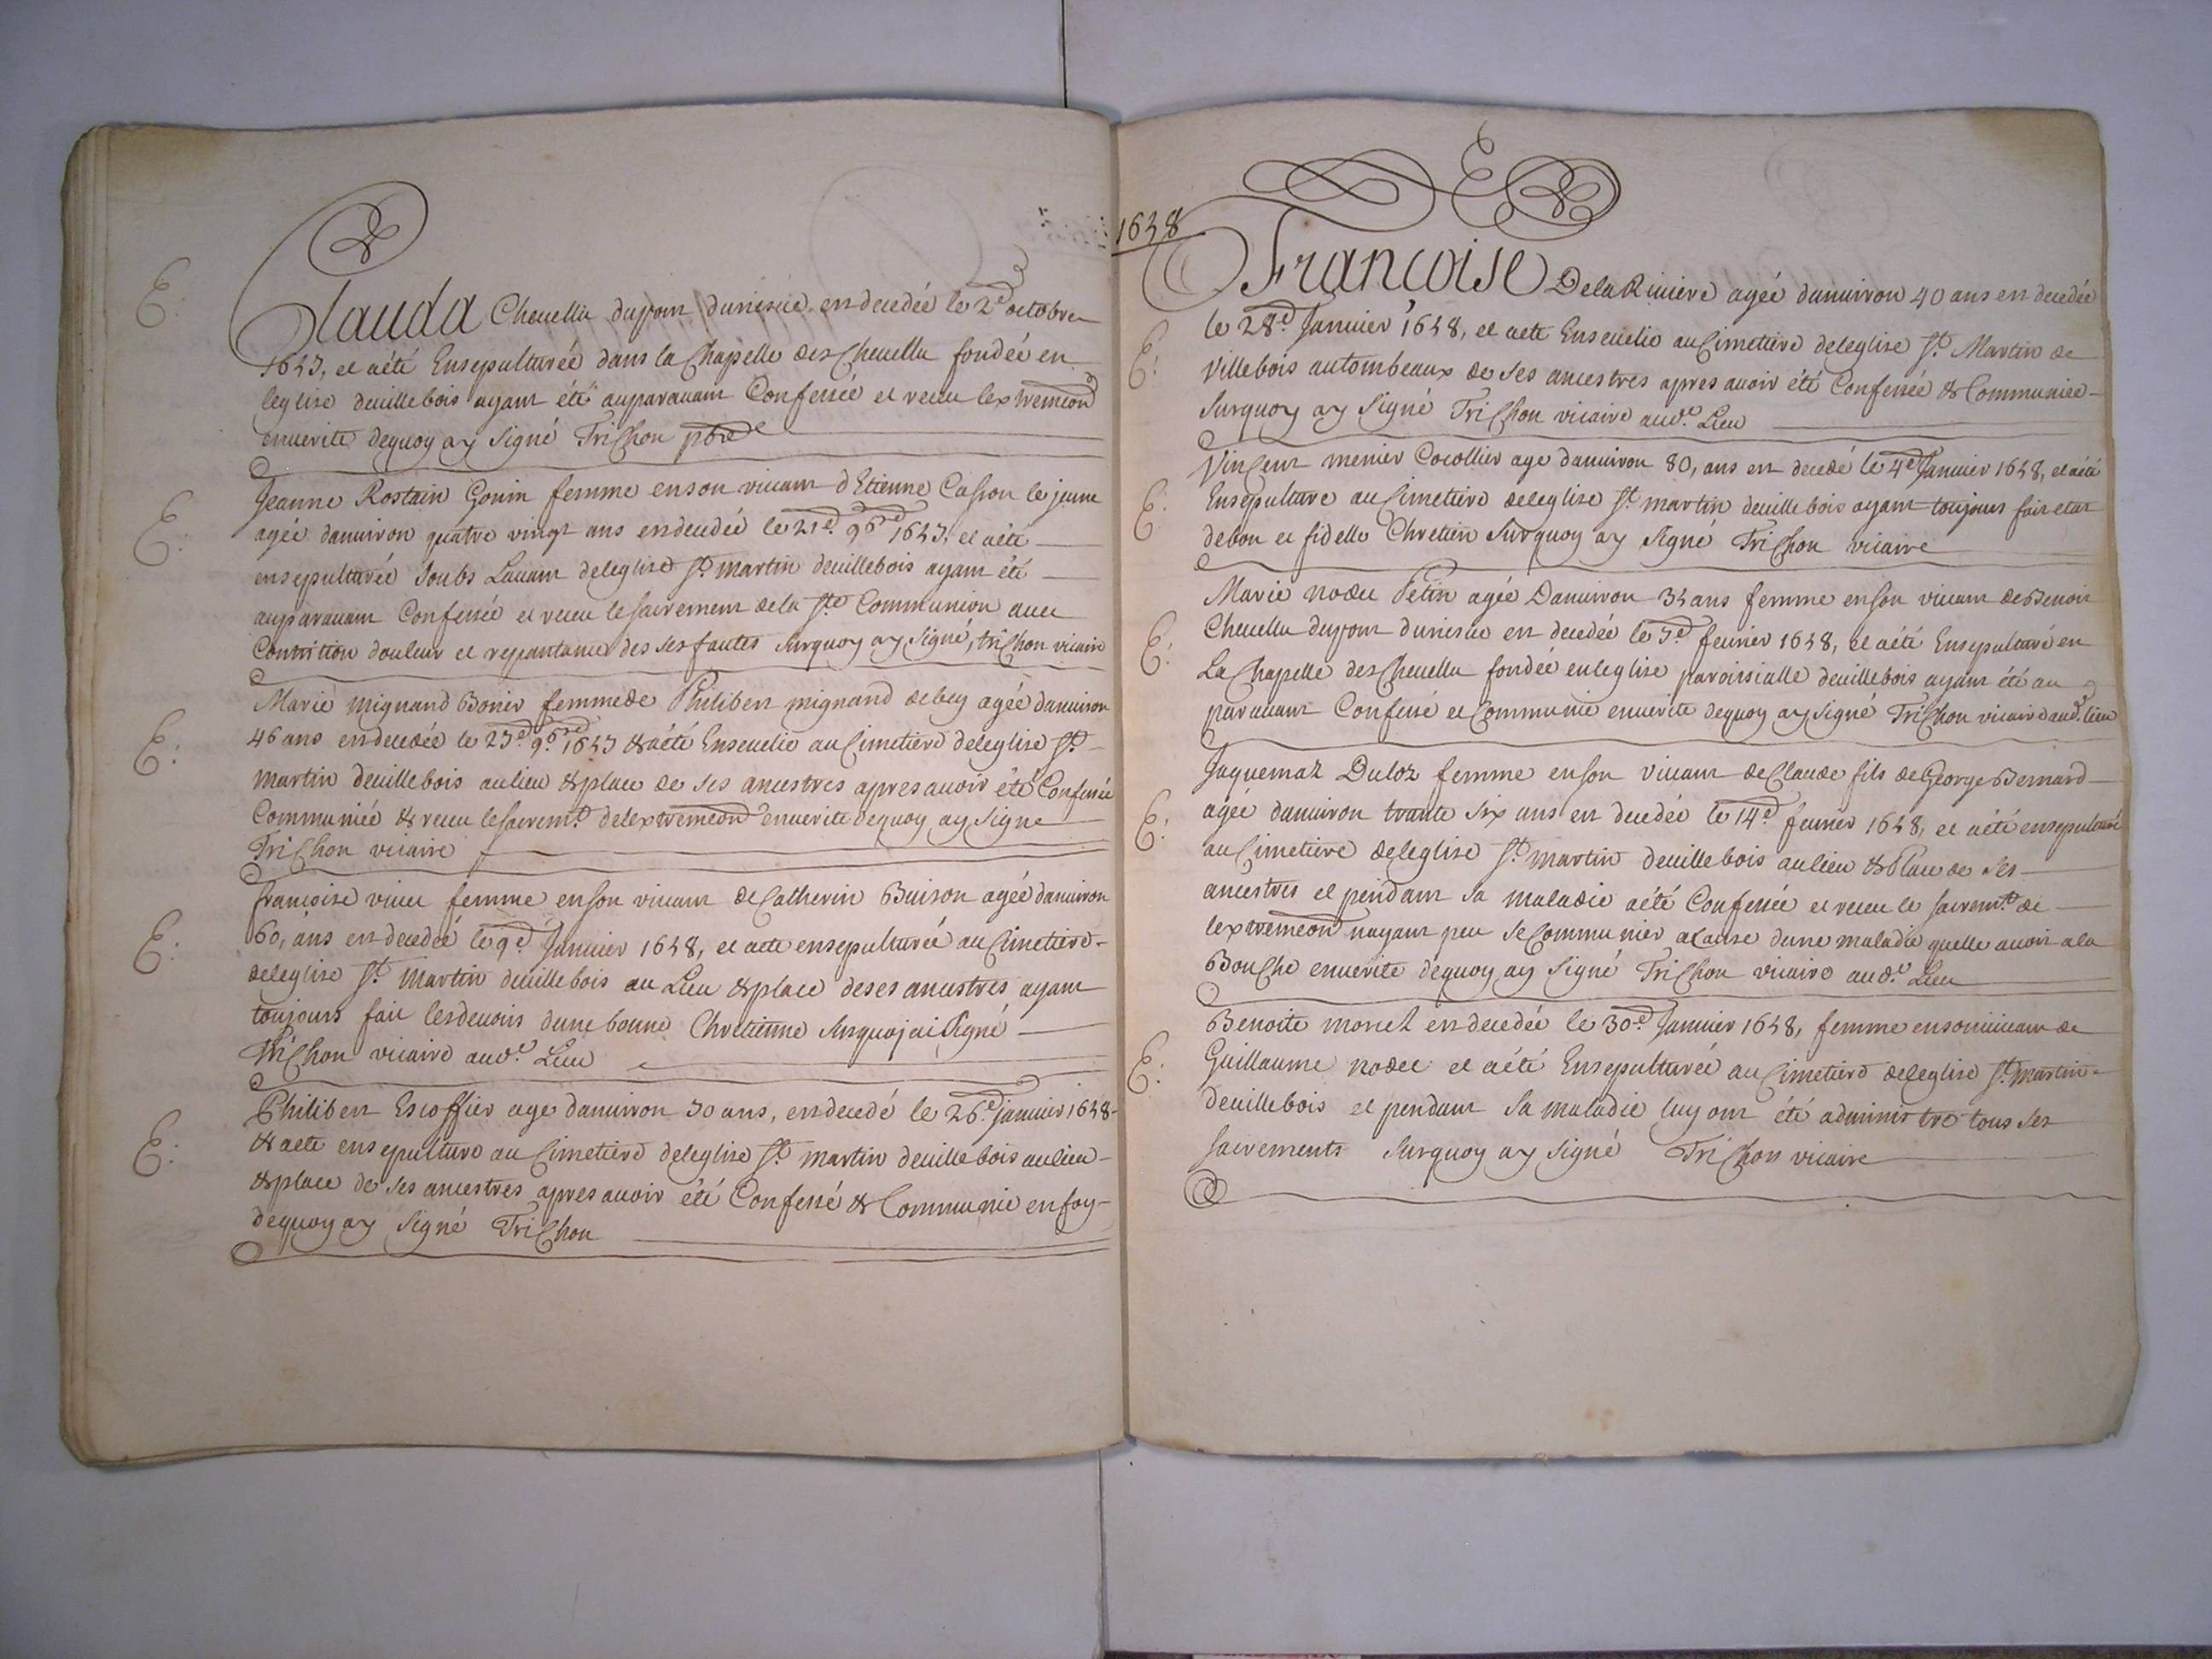 E.
Clauda Chevellu dupont durieu en decedée le 2.d octobre
1647, et a été Ensepulturée dans la Chapelle des Chevellu fondée en
leglise devillebois ayant été auparavant Confessée et receu lextremeon
enverite dequoy ay signé Trichon pbre
E.
Jeanne Rostain Gonin femme en son vivant d'Etienne Casson le jeune
agée danviron quatre vingt ans en decedée le 21.d 9b.re 1647, et a été
ensepulturée soubs Lavant deleglise St. martin devillebois ayant été
auparavant Confessée et receu le sacrement dela Ste Communion avec
Contrition douleur et repantance des ses fautes surquoy ay signé, trichon vicaire
E.
Marie mignand Bonier femme de Philibert mignand debey agée danviron
46 ans en decedée le 27.d 9b.re 1647 & a été Ensevelie au Cimetiere deleglise St.
martin devillebois au lieu & place de ses ancestres apres avoir été Confessée
Communiée & receu le sacremt. delextremeon enverite dequoy ay signe
Trichon vicaire
E.
francoise vivier femme en son vivant de Catherin Buison agée danviron
60, ans en decedée le 9.e Janvier 1648, et a ete ensepulturée au Cimetiere
deleglise St. Martin devillebois au Lieu & place deses ancestres ayant
toujours fait lesdevoirs dune bonne Chretienne surquoj ai signé
Trichon vicaire aud.t Lieu
E.
Philibert Escoffier age danviron 70 ans, en decedé le 26.e janvier 1648
& a ete ensepulture au Cimetiere deleglise St. martin devillebois au lieu
& place de ses ancestres apres avoir été Confessé & Communie en foy
dequoy ay signé Trichon
1648
Francoise Dela Riviere agée danviron 40 ans en decedée
le 28.d Janvier 1648, et a ete Ensevelie au Cimetiere deleglise St. Martin de
E.
villebois au tombeaux de ses ancestres apres avoir été Confessée & Communiée
surquoy ay signé Trichon vicaire aud.t Lieu
Vincent menier Cocollier age danviron 80, ans en decedé le 4.e Janvier 1648, et a été
E.
Ensepulture au Cimetiere deleglise St. martin devillebois ayant toujours fait etat
debon et fidelle Chretien surquoy ay signé Trichon vicaire
Marie nodet Petin agée Danviron 34 ans femme en son vivant de Benoit
Chevellu dupont durieu en decedée le 7.d fevrier 1648, et a été Ensepulturé en
E.
La Chapelle des Chevellu fondée en leglise paroissialle devillebois ayant été au
paravant Confessé et Communié enverite dequoy ay signé Trichon vicaire aud.t lieu
Jaquemaz Duloz femme en son vivant de Claude fils de George Bernard
E.
agée danviron trante six ans en decedée le 14.d fevrier 1648, et a été ensepulturé
au Cimetiere deleglise St. martin devillebois au lieu & Place de ses
ancestres et pendant sa maladie a été Confessée et receu le sacremt. de
lextremeon nayant peu se Communier a cause dune maladie quelle avoit a la
Bouche enverite dequoy ay signé Trichon vicaire aud.t Lieu
Benoite monet en decedée le 30.e Janvier 1648, femme en son vivant de
E.
Guillaume nodet et a été Ensepulturée au Cimetiere deleglise St. martin
devillebois et pendant sa maladie luy ont été administre tous ses
sacrements surquoy ay signé Trichon vicaire